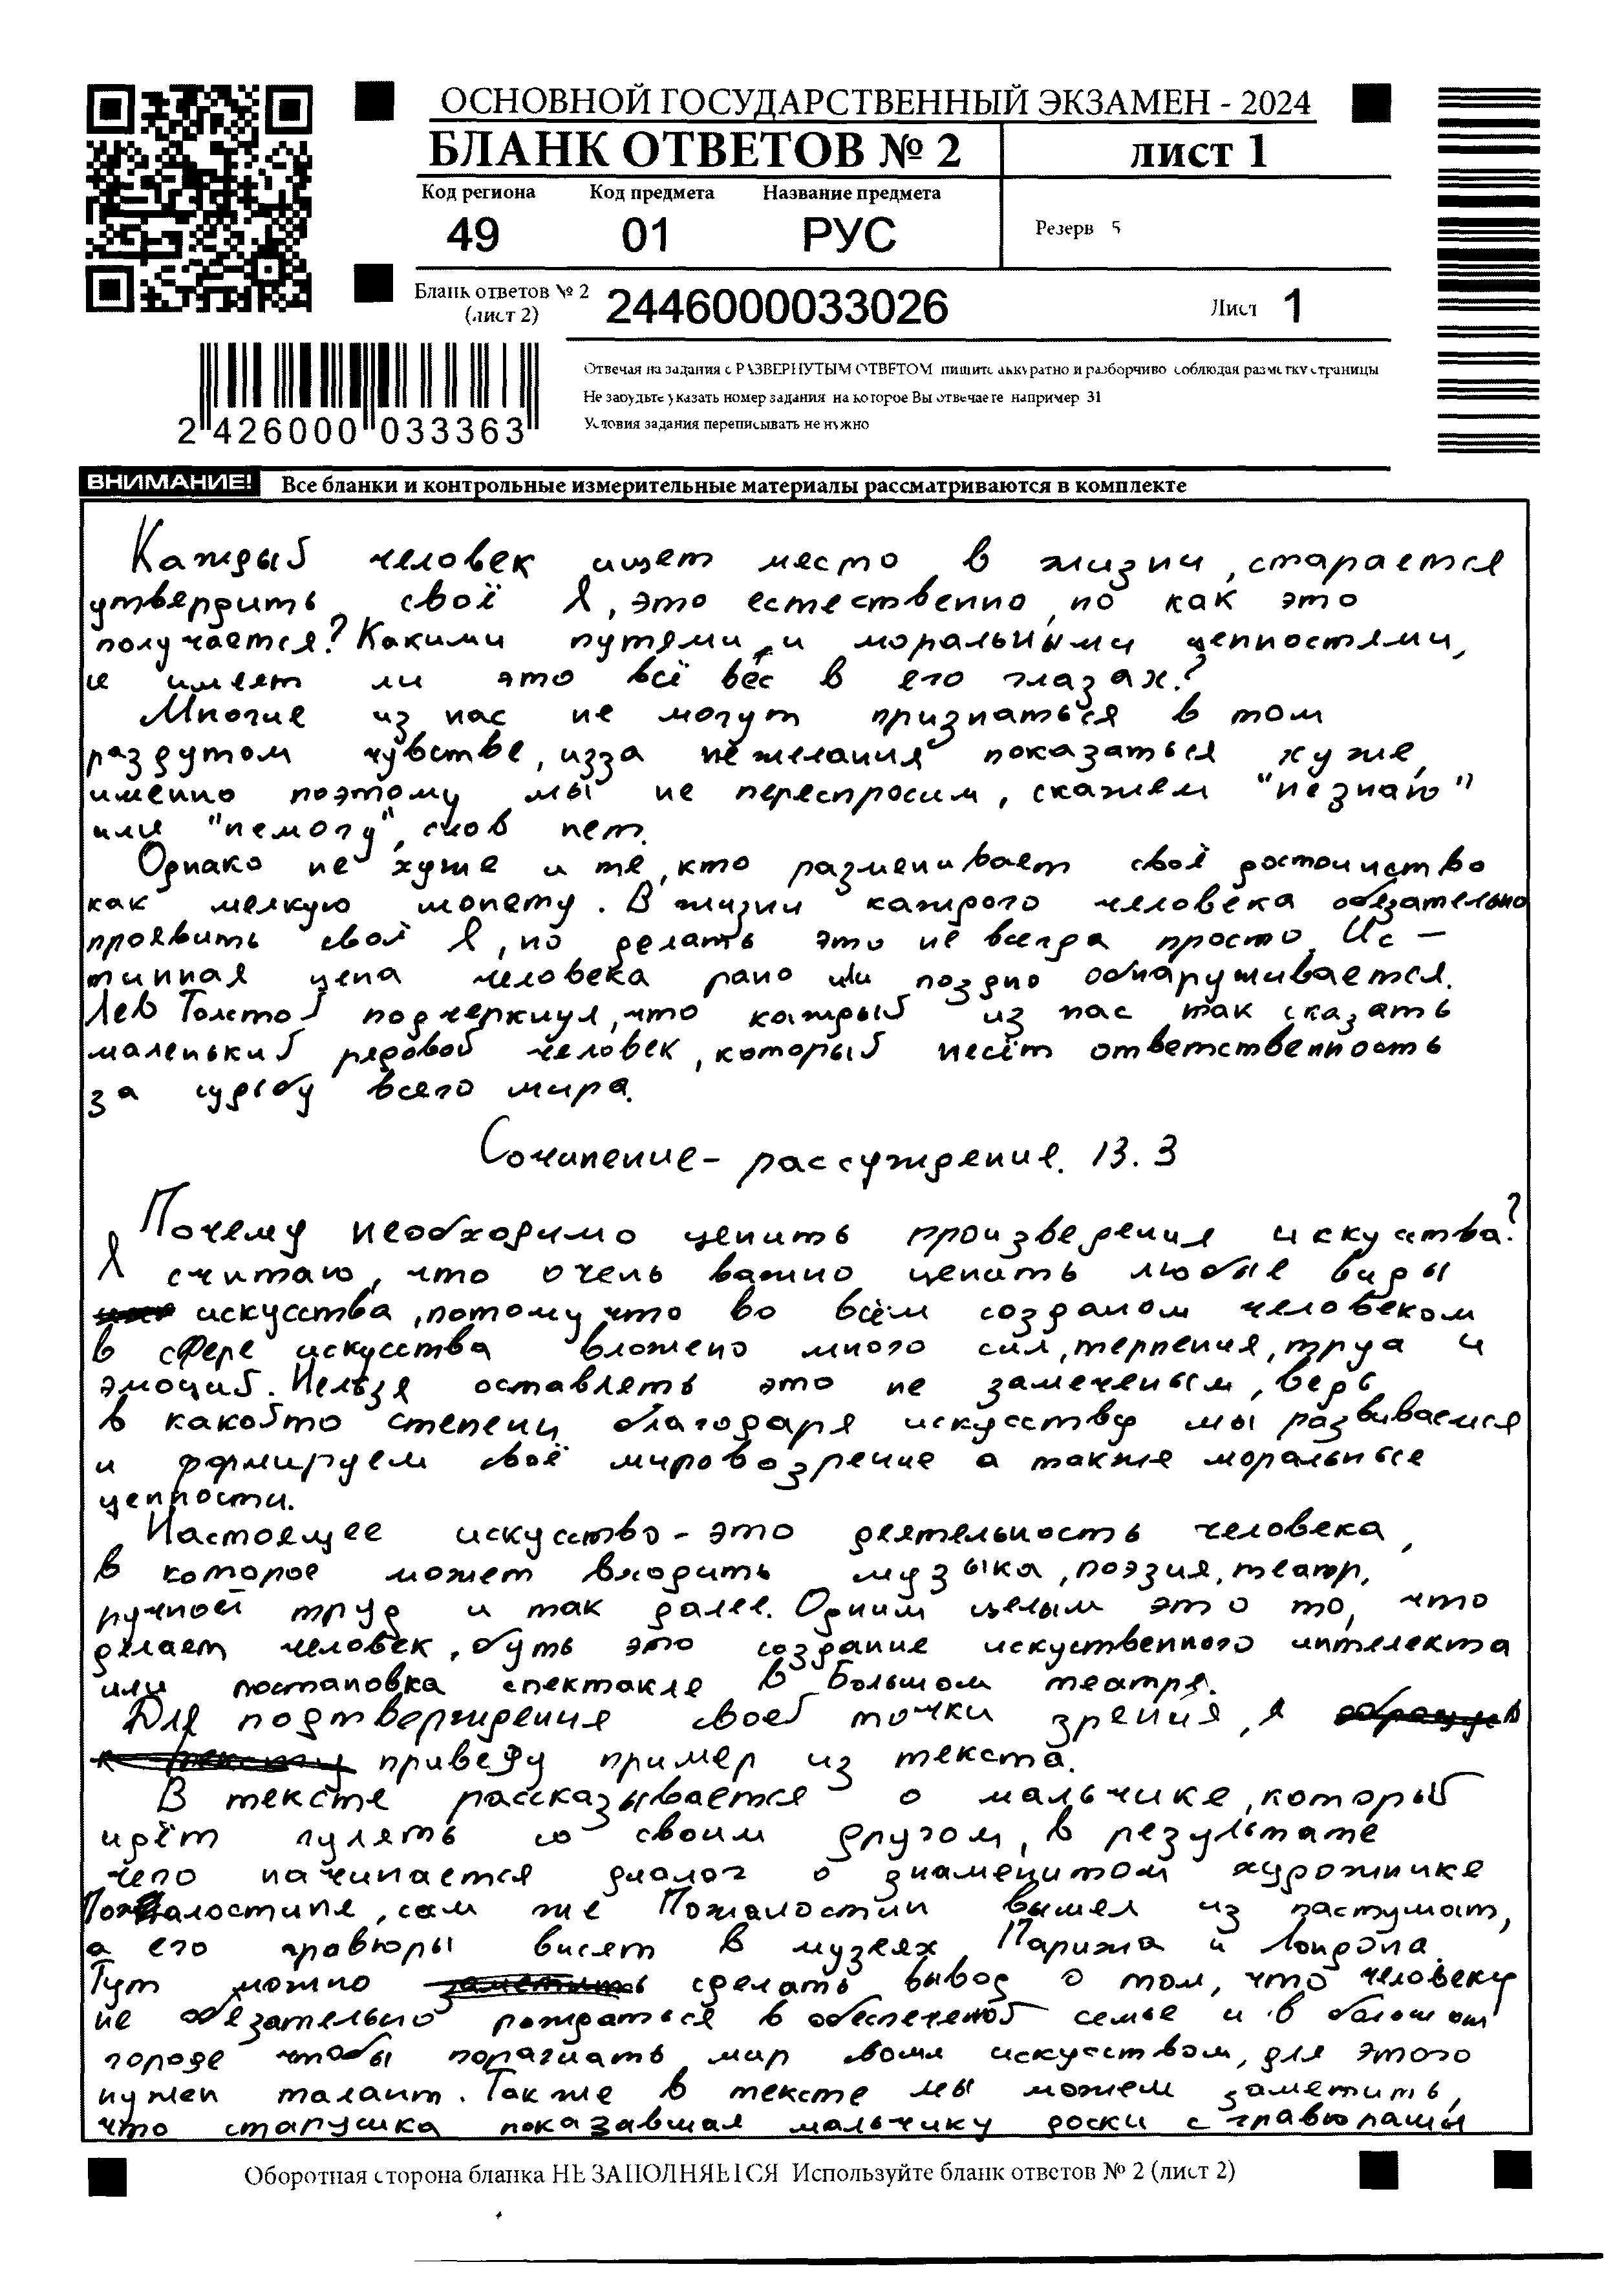 ОСНОВНОЙ ГОСУДАРСТВЕННЫЙ ЭКЗАМЕН - 2024
БЛАНК ОТВЕТОВ № 2
лист 1
Код региона Код предмета Название предмета
49 01 РУС
Резерв 5
Бланк ответов № 2
(лист 2)
2446000033026
Лист 1
Отвечая на задания с РАЗВЕРНУТЫМ ОТВЕТОМ пишите аккуратно и разборчиво соблюдая разметку страницы
Не забудьте указать номер задания на которое Вы отвечаете например 31
Условия задания переписывать не нужно
2 426000 033363
ВНИМАНИЕ! Все бланки и контрольные измерительные материалы рассматриваются в комплекте
Каждый человек ищет место в жизни, старается
утвердить своё Я, это естественно, но как это
получается? Какими путями и моральными ценностями,
и имеет ли это всё вес в его глазах?
Многие из нас не могут признаться в том
раздутом чувстве, изза нежелания показаться хуже,
именно поэтому мы не переспросим, скажем "незнаю"
или "немогу", слов нет.
Однако не хуже и те, кто разменивает своё достоинство
как мелкую монету. В жизни каждого человека обязательно
проявить своё Я, но делать это не всегда просто. Ис-
тинная цена человека рано или поздно обнаруживается.
Лев Толстой подчеркнул, что каждый из нас так сказать
маленький рядовой человек, который несёт ответственность
за судьбу всего мира.
Сочинение- рассуждение. 13.3
Почему необходимо ценить произведения искуства?
Я считаю, что очень важно ценить любые виды
искусства, потому что во всём созданом человеком
в сфере искусства вложено много сил, терпения, труа и
эмоций. Нельзя оставлять это не замеченым, ведь
в какойто степени благодаря искусству мы развиваемся
и формируем своё мировозрение а также моральные
ценности.
Настоящее искусство - это деятельность человека,
в которое может входить музыка, поэзия, театр,
ручной труд и так далее. Одним целым это то, что
делает человек, буть это создание искуственного интелекта
или постановка спектакля в Большом театре.
Для подтверждения своей точки зрения, я
приведу пример из текста.
В тексте рассказывается о мальчике, который
идёт гулять со своим другом, в результате
чего начинается диалог о знаменитом художнике
Пожалостине, сам же Пожалостин вышел из пастушат,
а его гравюры висят в музеях Парижа и Лондона.
Тут можно сделать вывод о том, что человеку
не обязательно рождаться в обеспеченой семье и в большом
городе чтобы поражать мир своим искусством, для этого
нужен талант. Так же в тексте мы можем заметить,
что старушка показавшая мальчику доски с гравюрами
Оборотная сторона бланка НЕ ЗАПОЛНЯЕТСЯ Используйте бланк ответов № 2 (лист 2)